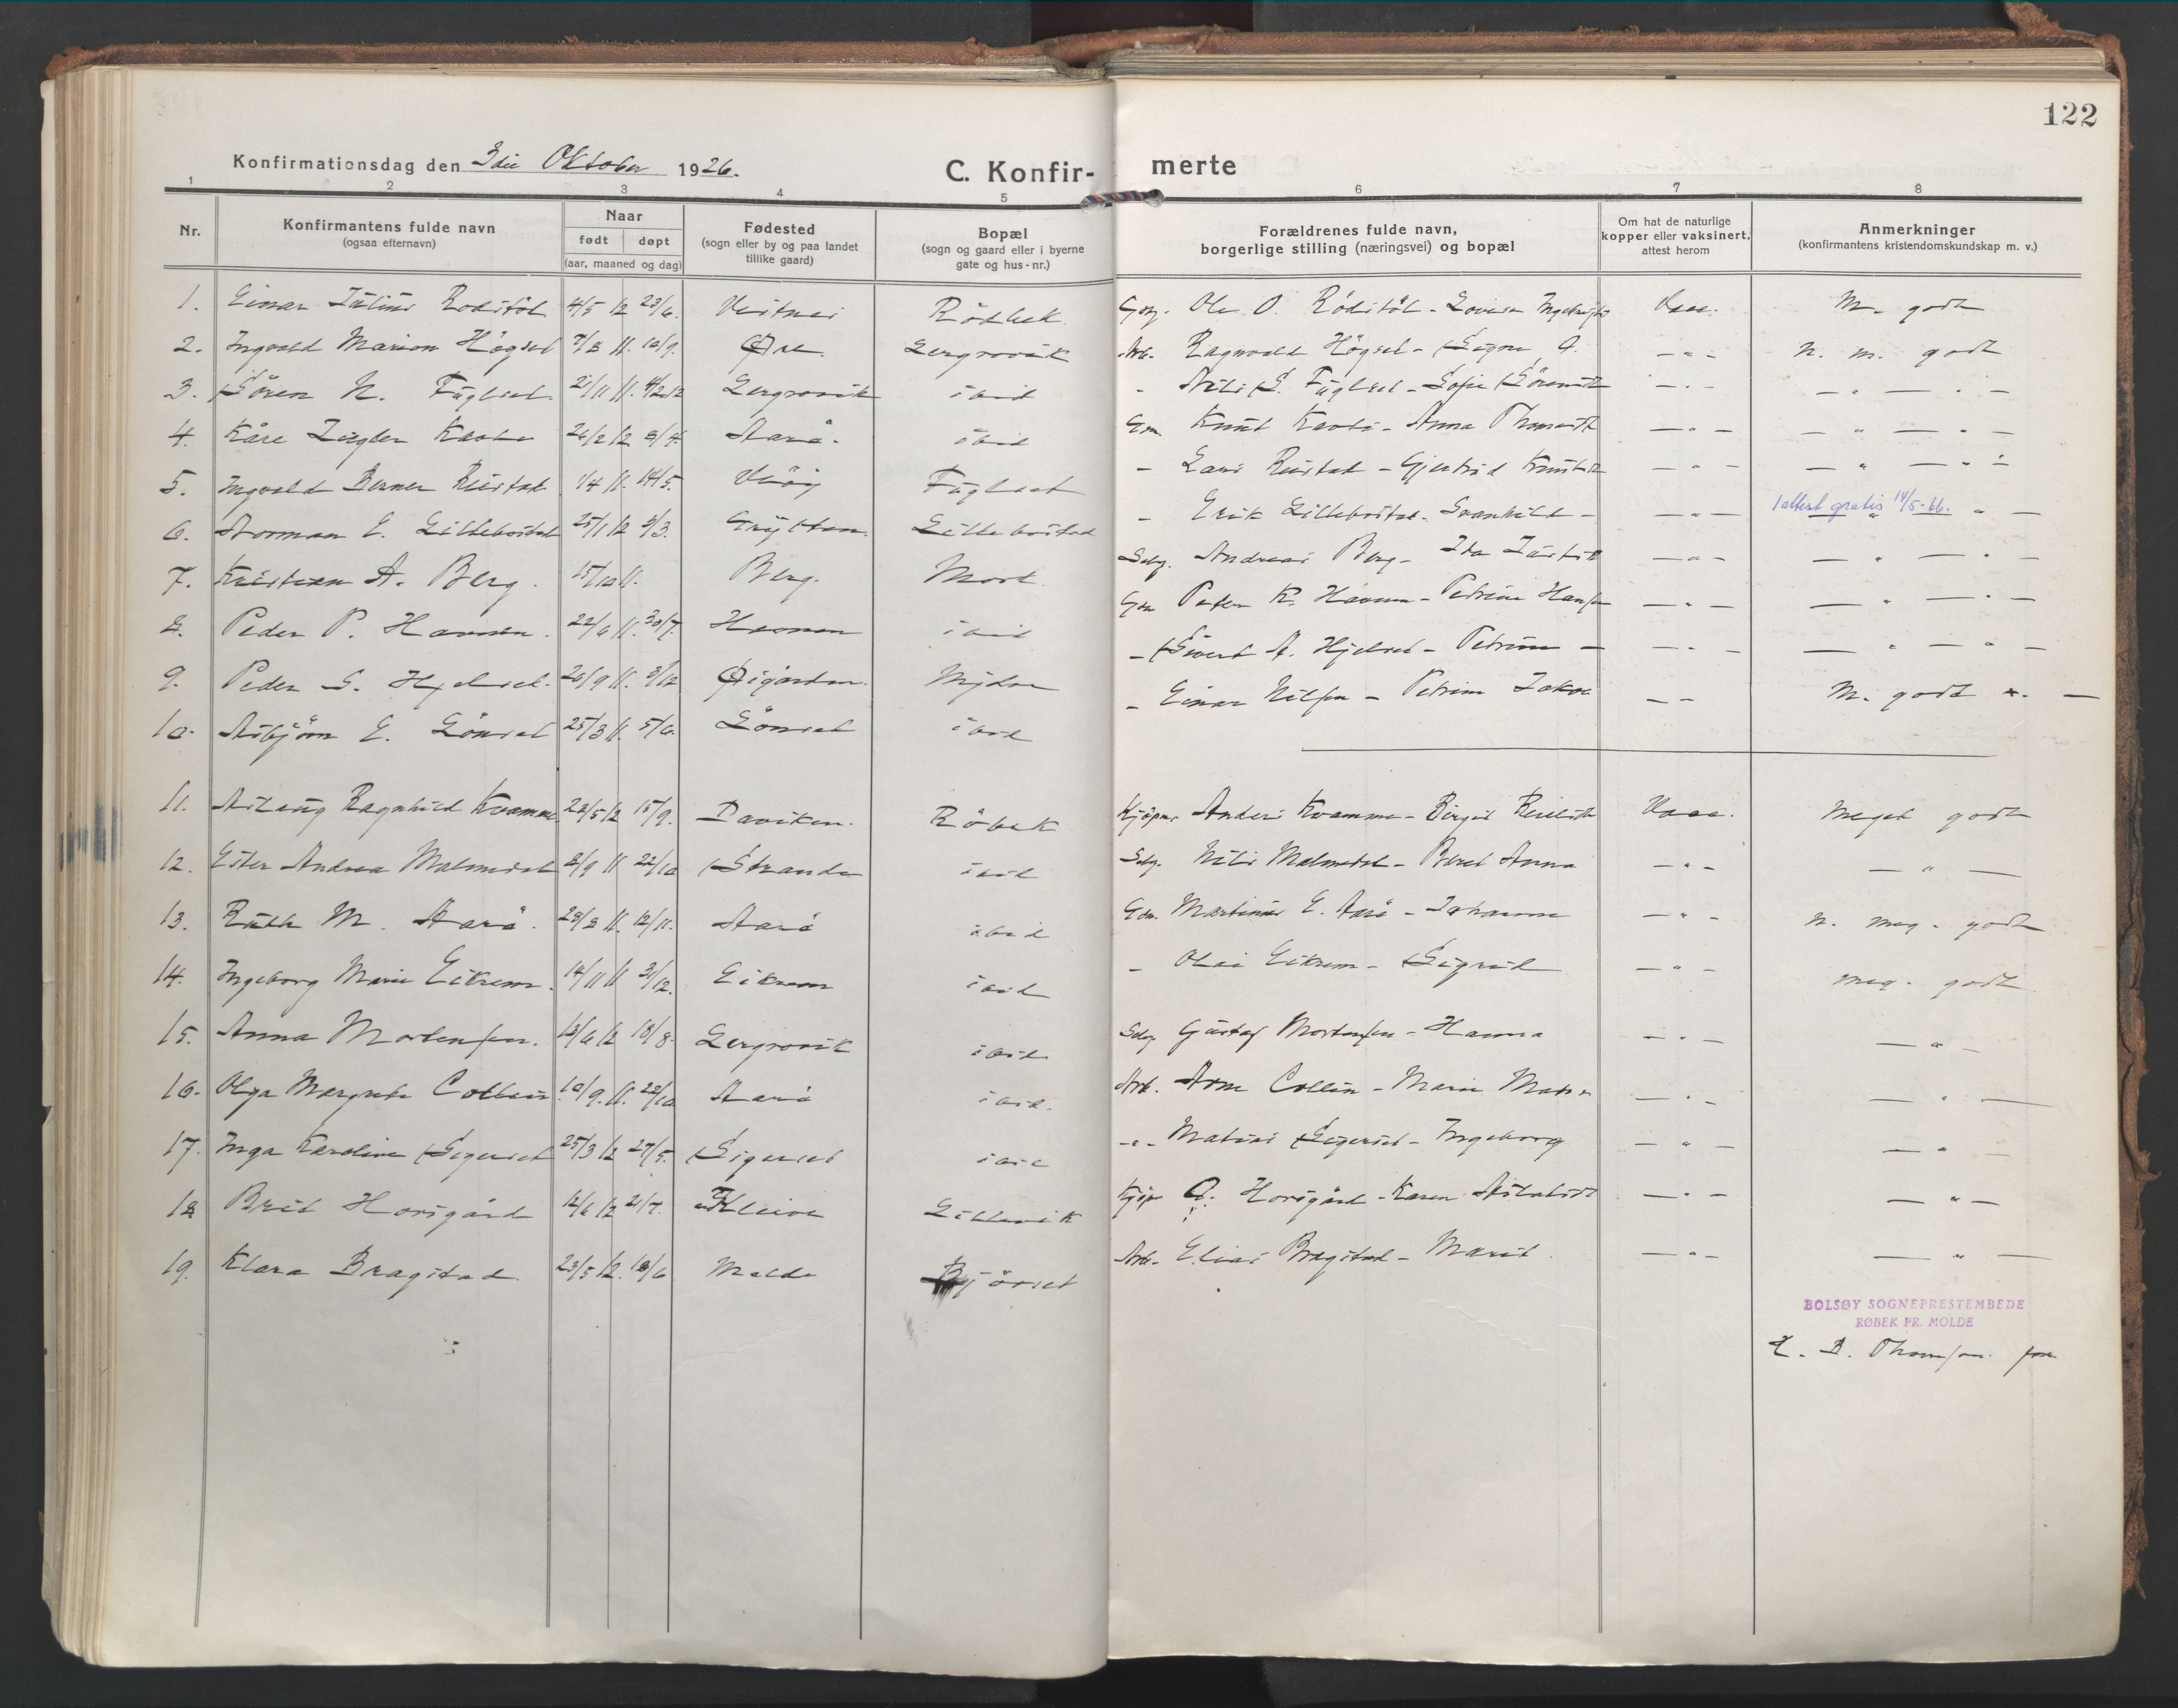 122
Konfirmationsdag den 3die Oktober 1926. C. Konfir- merte
1 2 3 4 5 6 7 8
Nr. Konfirmantens fulde navn (ogsaa efternavn) Naar født døpt (aar, maaned og dag) Fødested (sogn eller by og paa landet tillike gaard) Bopæl (sogn og gaard eller i byerne gate og hus-nr.) Forældrenes fulde navn, borgerlige stilling (næringsvei) og bopæl Om hat de naturlige kopper eller vaksinert, attest herom Anmerkninger (konfirmantens kristendomskundskap m. v.)
1. Einar Julius 4/5 12 23/6. Vestnes Röbek Ole O. Vacc. M. godt
2. Ingvald Marion Högset 7/8 11. 10/9. Øre. Lergrovik Arb. Ragnvald Högset - Signe O. - " - n. m. godt
3. Sören N. Fuglset 21/11 11. 4/2 12 Lergrovik ibid - Nils S. Fuglset - Sofie Sörensdt - " - - " - " -
4. Kåre 26/2 12 8/4. Aarö. ibid Gm. Knut - Anna Thomasdt - " - - " - " -
5. Ingvald Berner 1/4 11. 14/5. Veöy Fuglset - Lars - Gjertrud Knutsdt - " - - " - " -
6. Norman E. Lillebostad 25/1 12 3/3. Grytten. Lillebostad - Erik Lillebostad - Svanhild - - " - 1 attest gratis 14/5-66. - " - " -
7. Kristian A. Berg. 15/10 11. Berg. Mork Selvg. Andreas Berg - Ida - " - - " - " -
8. Peder P. Havnen. 22/6 11. 30/7. Havnen ibid Gm Peter K. Havnen - Petrine Hansen - " - - " - " -
9. Peder S. Hjelset. 26/9 11. 3/12 Öigarden. - Sivert A. Hjelset - Petrine - - " - - " - " -
10. Asbjörn E. Lönset 25/3 11. 5/6. Lönset ibid - Einar Nilsen - Petrine Jakobs - - M. godt -
11. Aslaug Ragnhild Kvamme 23/5 12 15/9. Daviken. Röbek Kjöpm. Anders Kvamme - Birgit Vacc. Meget godt
12. Ester Andrea Malmedal 2/9 11 22/10 Stranda ibid Selvg. Nils Malmedal - Berit Anna - " - - " -
13. Ruth M. Aarö. 28/8 11. 12/11. Aarö ibid Gm. Martinus E. Aarö - Johanna - " - n. meg. godt
14. Ingeborg Marie Eikrem. 14/11 11 31/12. Eikrem ibid - Olai Eikrem - Sigrid - " - meg. godt
15. Anna Mortensen. 13/6 12 18/8. Lergrovik ibid. Selvg Gustaf Mortensen - Hanna - " - - " -
16. Olga Margrete Collin 10/9. 11. 22/10 Aarö ibid. Arb. Arne Collin - Marie - " - - " -
17. Inga Karoline Sigerset 25/3 12 27/5. Sigerset ibid - " - Matias Sigerset - Ingeborg - " - - " -
18 Brit Horsgård 12/6 12 21/7. Kleive Lillevik Kjöpm O. Horsgård - Karen - " - - " -
19. Klara Bragstad 23/5 12. 18/6 Molde Björset Arb. Elias Bragstad - Marit. - " - - " -
BOLSØY SOGNEPRESTEMBEDE
RØBEK PR. MOLDE